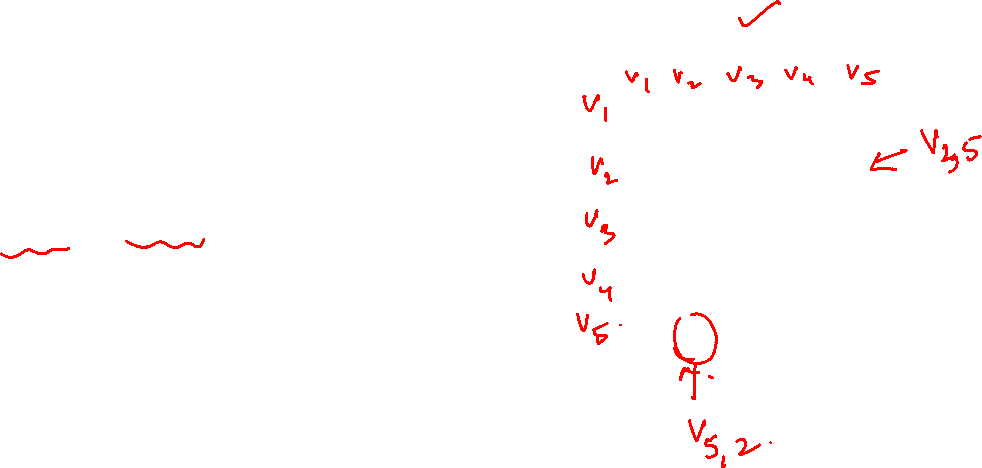 v1 v2 v3 v4 v5
v1
V2,5
v2
v3
v4
v5
V5,2